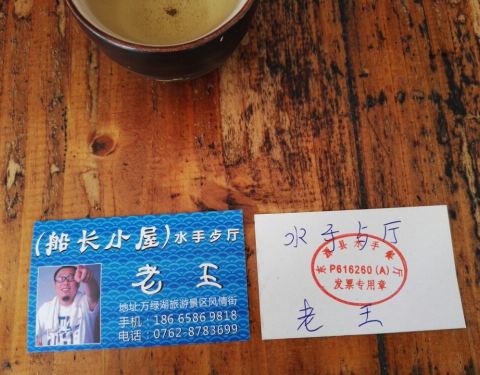 (船长小屋)水手歺厅
老王
地址:万绿湖旅游景区风情街
手机：186 6586 9818
电话：0762-8783699
水手歺厅
东源县水手餐厅
P616260(A)
发票专用章
老王